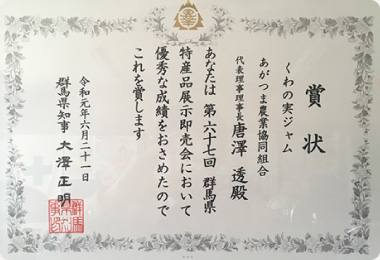 賞状
くわの実ジャム
あがつま農業協同組合
代表理事理事長 唐澤 透殿
あなたは 第六十七回 群馬県
特産品展示即売会において
優秀な成績をおさめたので
これを賞します
令和元年六月二十一日
群馬県知事 大澤正明